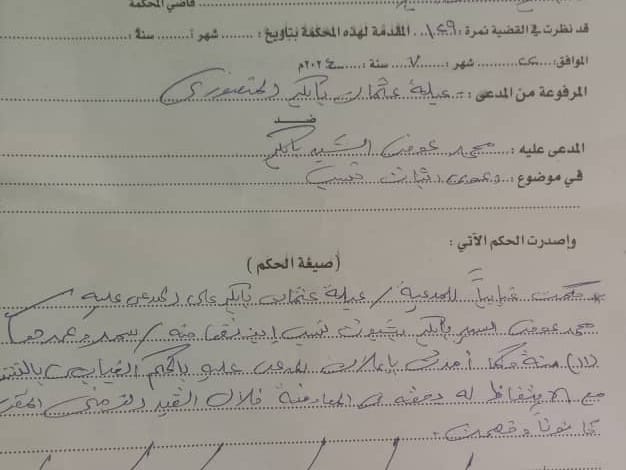 قاضي المحكمة
قد نظرت في القضية نمرة : ١٤٩/ المقدمة لهذه المحكمة بتاريخ : شهر : سنة :
الموافق : شهر : ٧ سنة : ٢٠٢٤م
المرفوعة من المدعى : عيلة عثمان بابكر المنصوري
ضد
المدعى عليه : محمد عوض السيد بابكر
في موضوع : دعوى اثبات نسب
واصدرت الحكم الآتي :
(صيغة الحكم)
حكمت غيابياً للمدعية / عيلة عثمان بابكر على المدعى عليه /
محمد عوض السيد بابكر بثبوت نسب منه /
(١١) سنة كما أمرت باعلان المدعى عليه بالحكم الغيابي
مع الاحتفاظ له بحقه في المعارضة خلال القيد الزمني المقرر
قانوناً